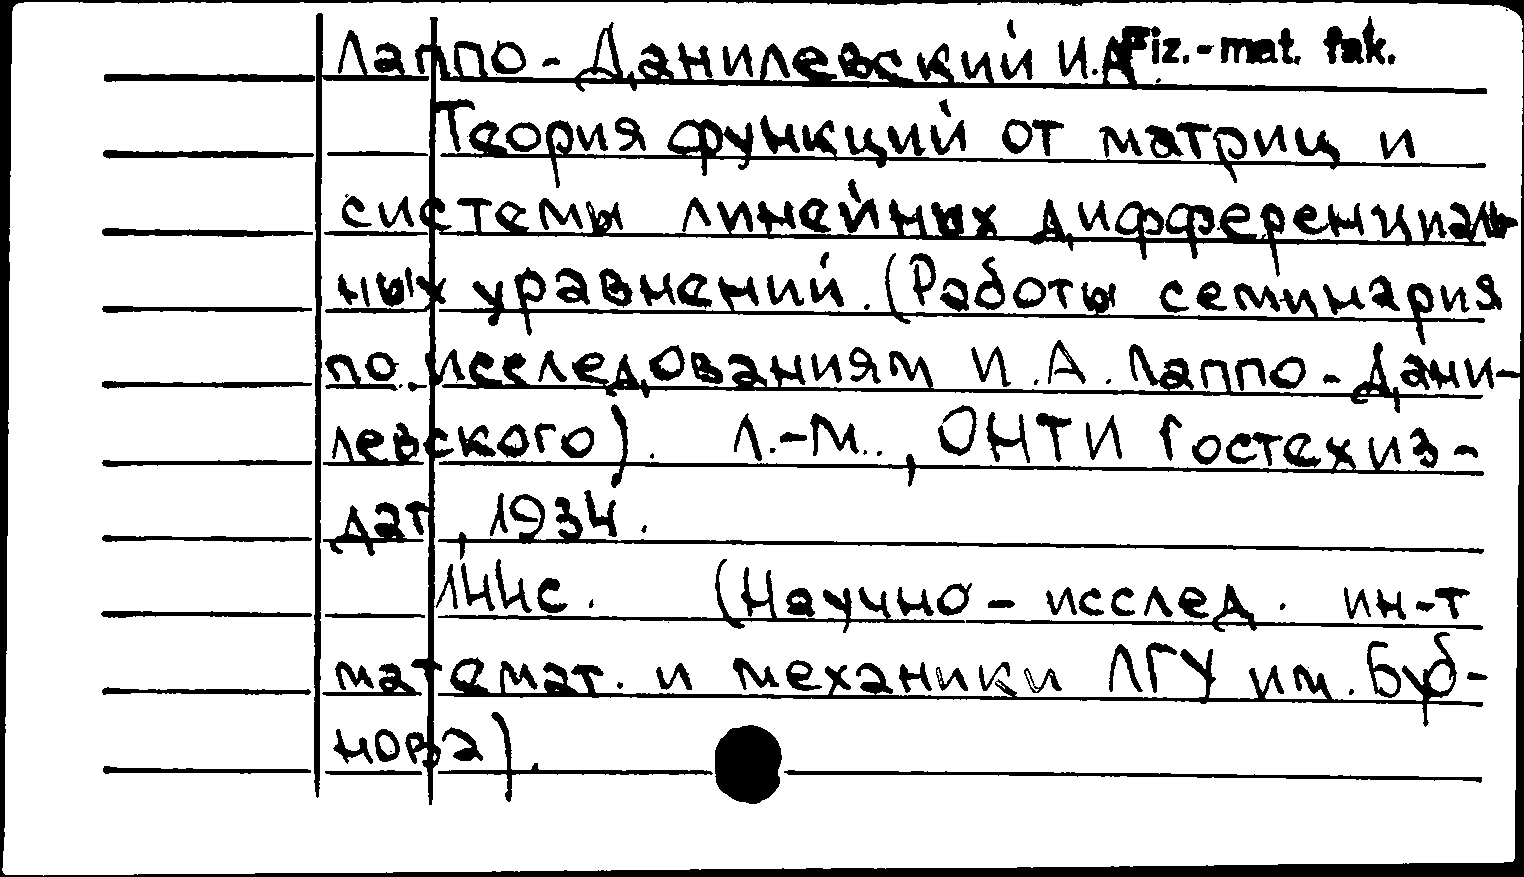 Лаппо-Данилевский И.А. Fiz.-mat. fak.
Теория функций от матриц и
системы линейных дифференциаль
ных уравнений. (Работы семинария
по исследованиям И.А. Лаппо-Дани-
левского). Л.-М., ОНТИ Гостехиз-
дат, 1934.
144с. (Научно-исслед. ин-т
математ. и механики ЛГУ им. Буб-
нова).